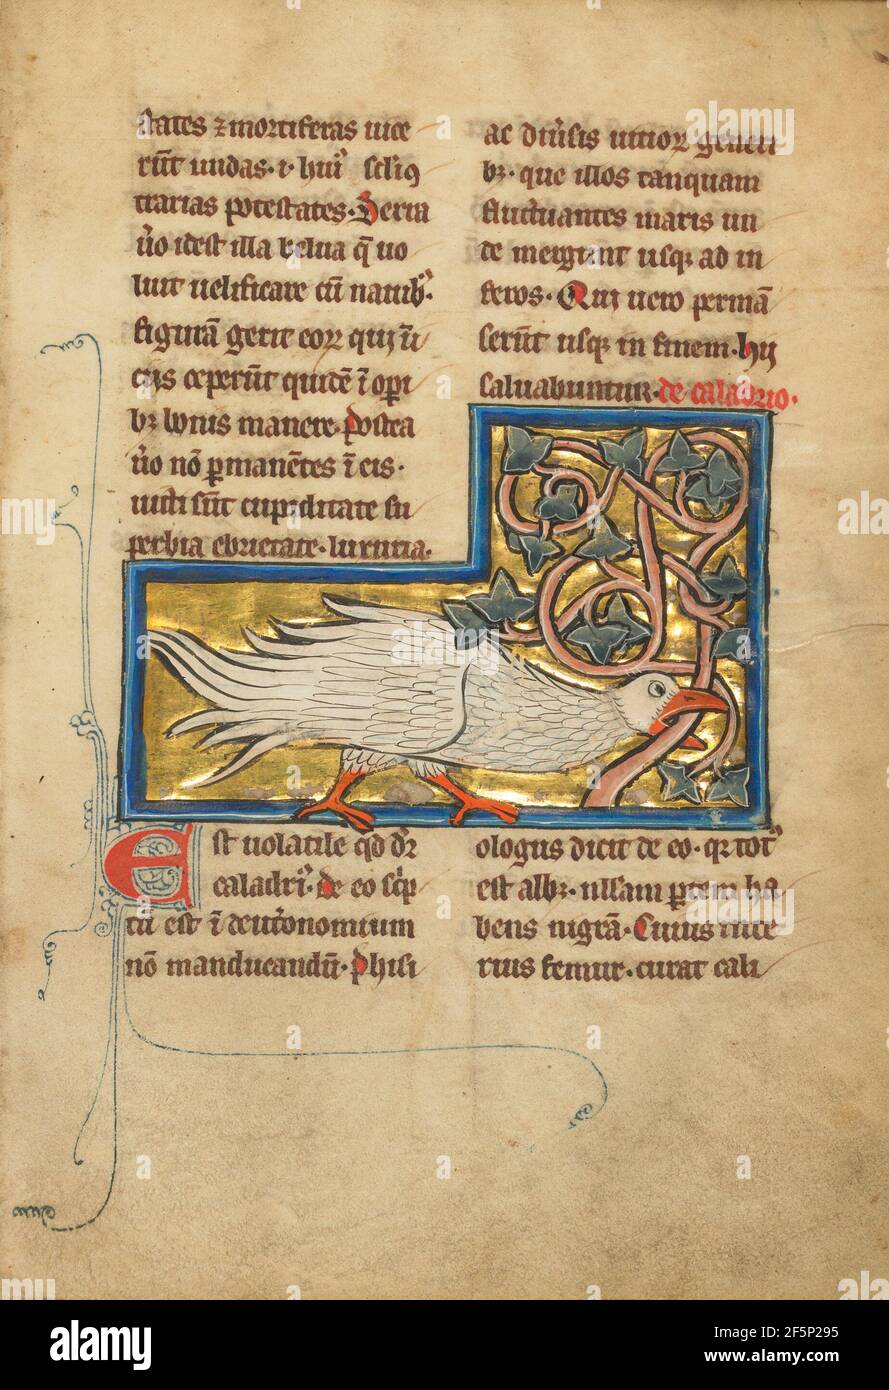 states ⁊ mortiferas uice
rūt undas · i · huiꝰ scłi ꝯ
trarias potestates · Serra
ůo idest illa belua q̄ uo
luit uelificare cū nauibꝰ·
figurā gerit eoꝝ qui ī i
ciis ceperūt quidē ī oꝑi
bꝫ bonis manere · postea
ůo nō ꝑmanētes ī eis ·
uicti sūt cupiditate su
perbia ebrietate · luxuria ·
ac diůsis uitioꝝ generi
bꝫ · que illos tanquam
fluctuantes maris un
de mergunt usqꝫ ad in
feros · Qui uero permā
serūt usqꝫ in finem · hij
saluabuntur · de caladrio ·
Est uolatile qd dr̄
caladriꝰ · de eo sc̄p
tū est ī deut̓onomium
nō manducandū · phisi
ologus dicit de eo · qꝫ totꝰ
est albꝰ · nllam ꝑtem ha
bens nigrā · Cuius inte
rius femur · curat cali
a
alamy
Image ID: 2F5P295
www.alamy.com